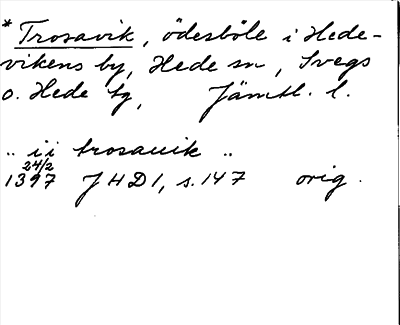 * Trosavik, ödesböle i Hede-
vikens by, Hede sn, Svegs
o. Hede tg, Jämtl. l.
„ i i trosauik „
24/2
1397 JHD1, s. 147 orig.